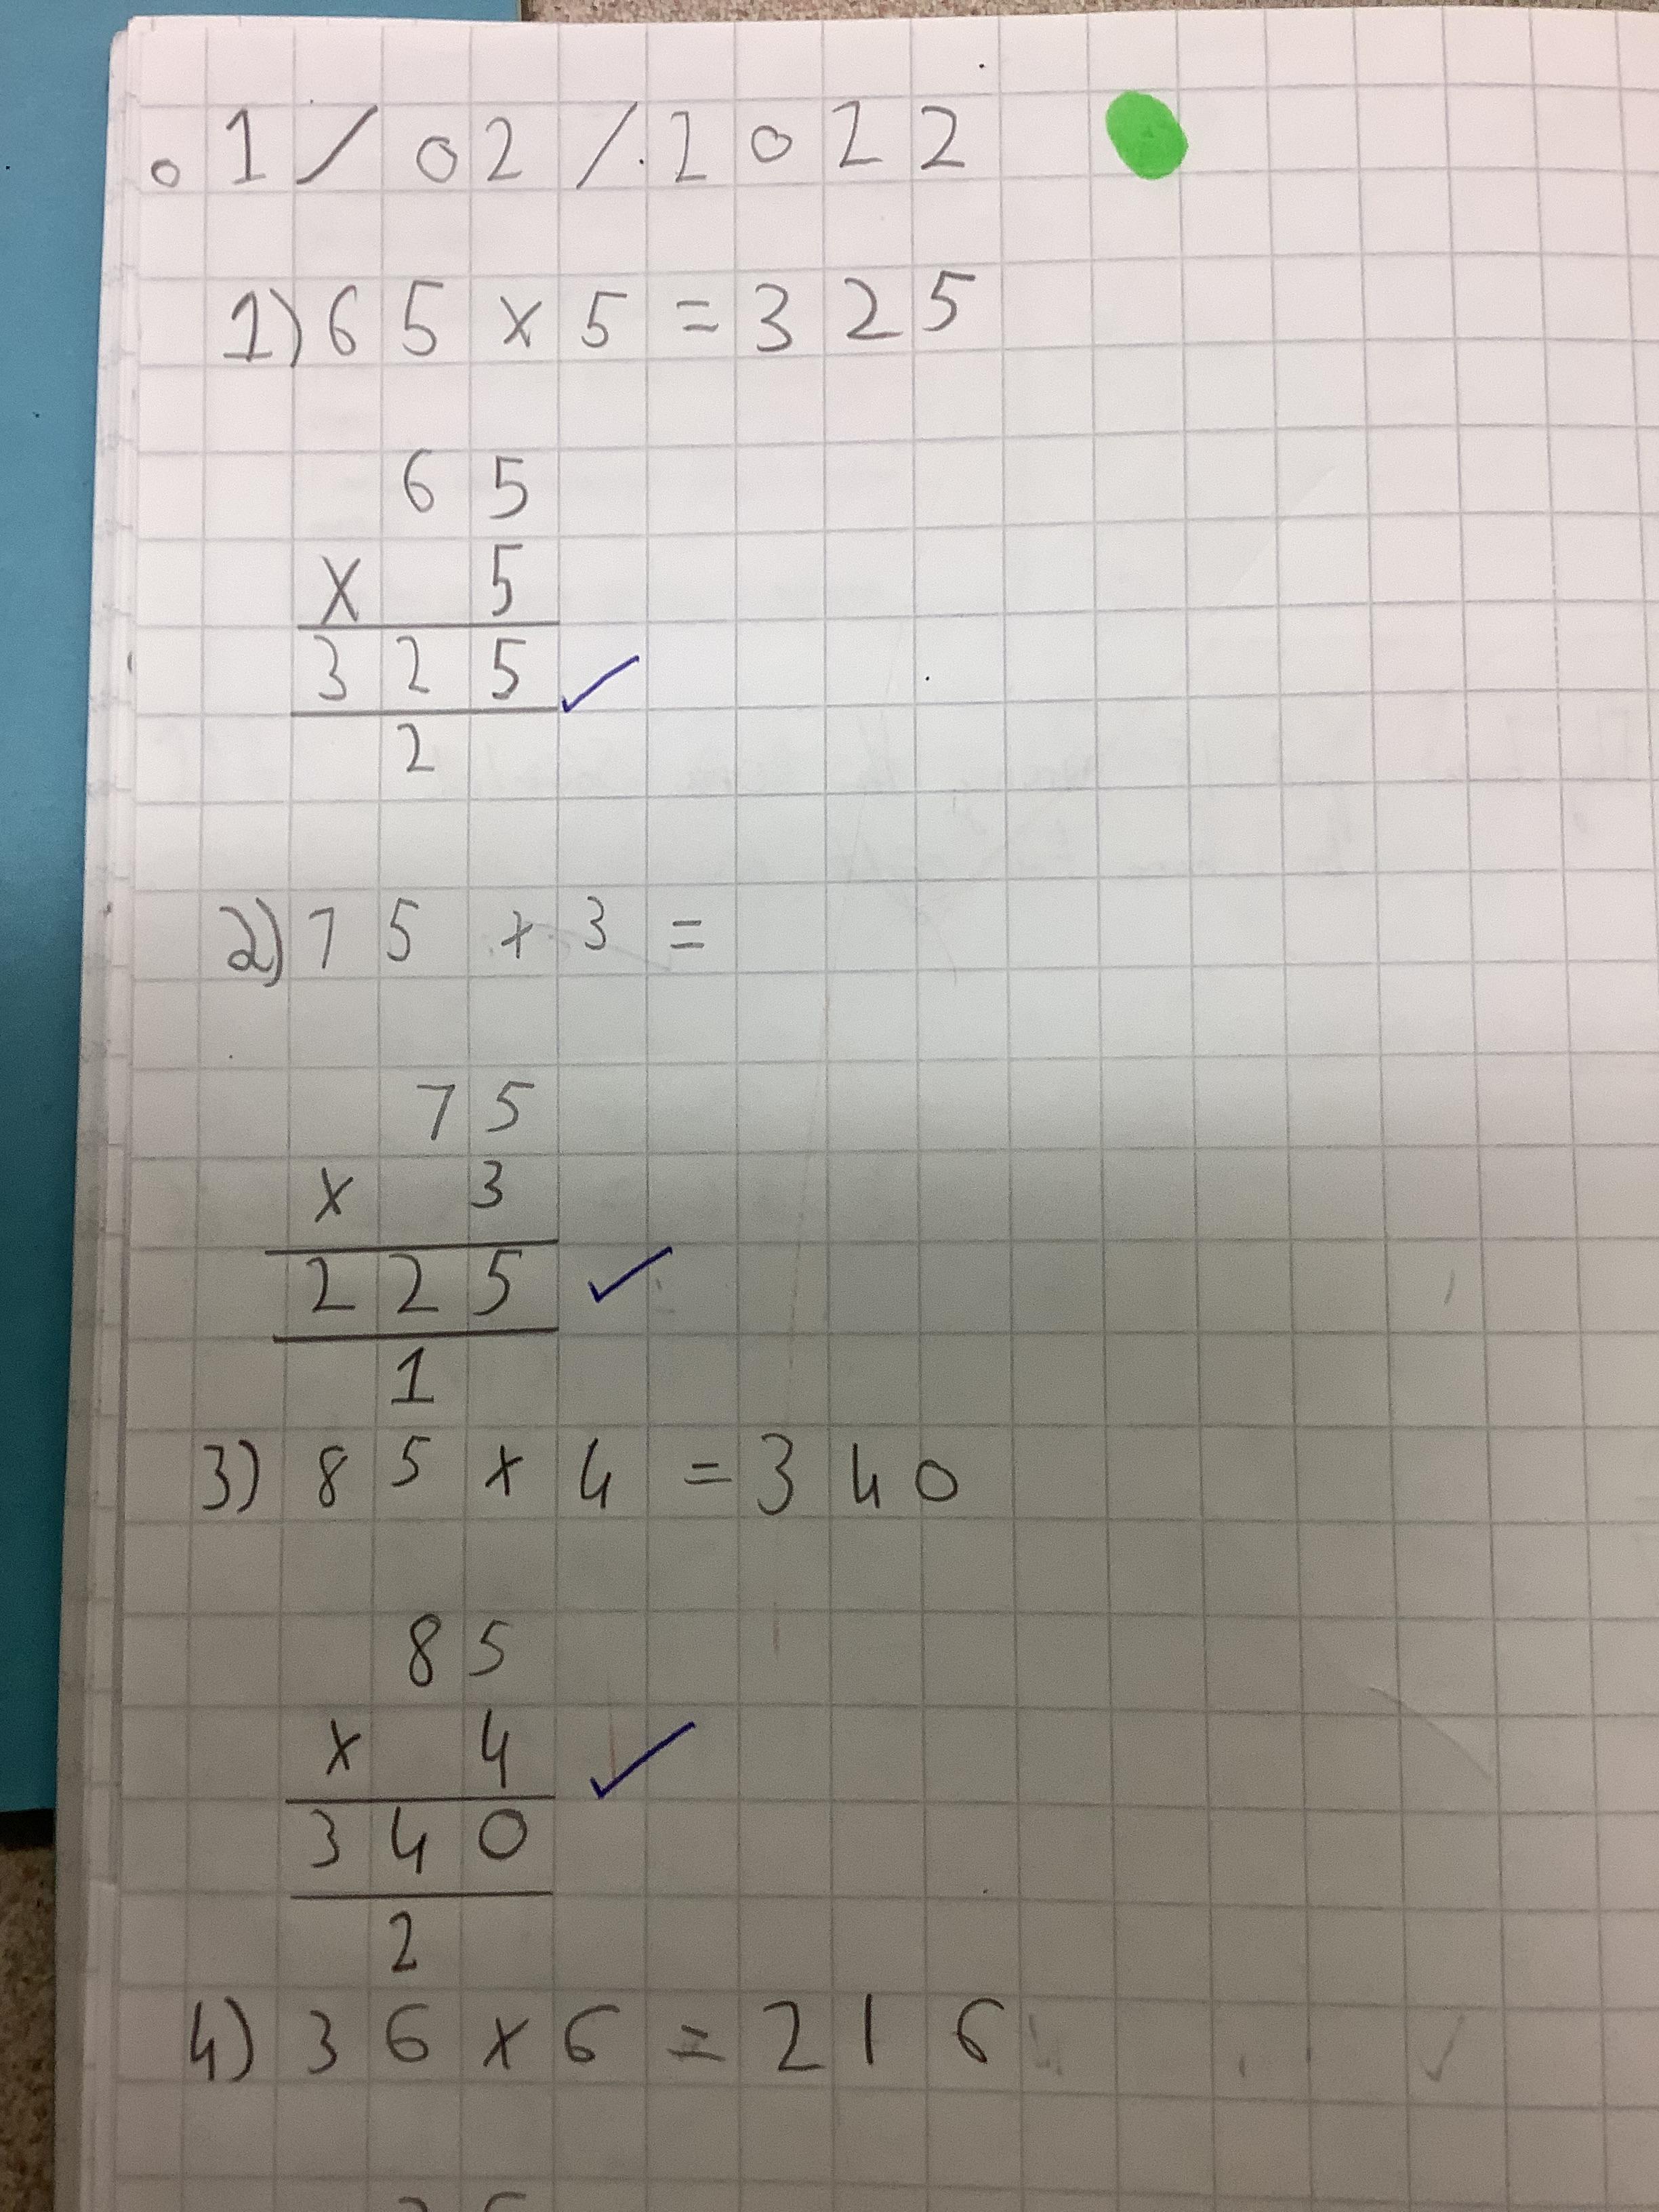 01/02/2022
1) 65 x 5 = 325
65
x 5
325 ✓
2
2) 75 x 3 =
75
x 3
225 ✓
1
3) 85 x 4 = 340
85
x 4 ✓
340
2
4) 36 x 6 = 216